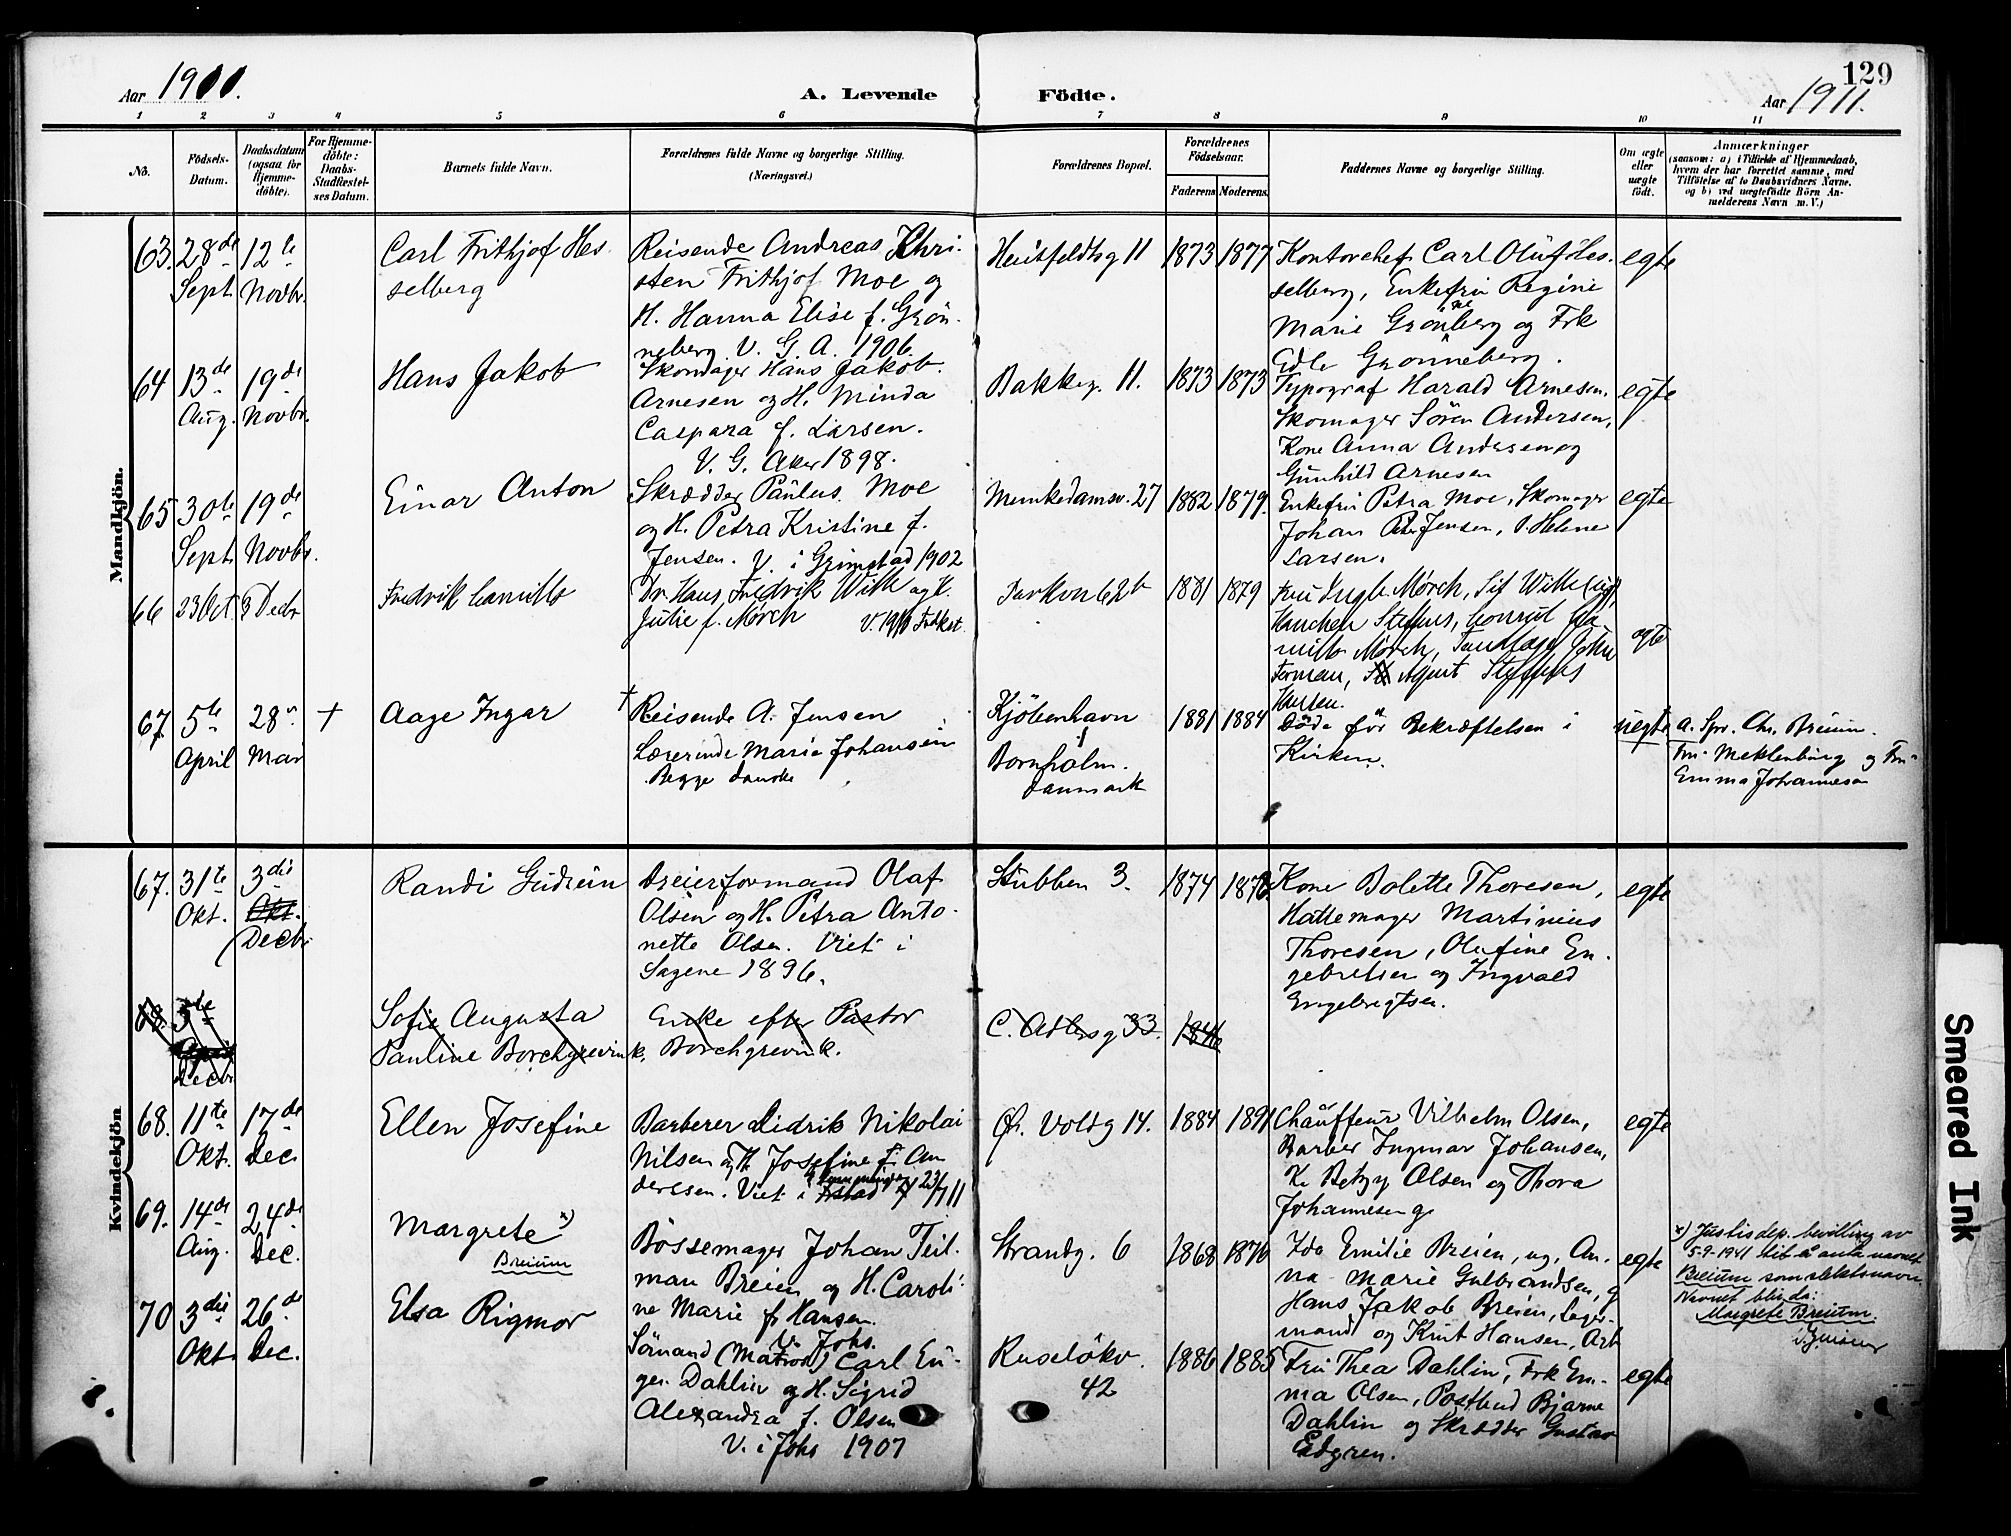 129
Aar 1911.
A. Levende Födte.
Aar 1911.
1 2 3 4 5 6 7 8 9 10 11
No.
Födsels-
Datum.
Daabsdatum
(ogsaa for
Hjemme-
döbte).
For Hjemme-
döbte:
Daabs-
Stadfæstel-
ses Datum.
Barnets fulde Navn.
Forældrenes fulde Navne og borgerlige Stilling.
(Næringsvei.)
Forældrenes Bopæl.
Forældrenes
Födselsaar.
Faderens Moderens.
Faddernes Navne og borgerlige Stilling.
Om ægte
eller
uægte
födt.
Anmærkninger
(saasom: a) i Tilfælde af Hjemmedaab,
hvem der har forrettet samme, med
Tilföielse af to Daabsvidners Navne,
og b) ved uægtefödte Börn An-
melderens Navn m. V.)
Mandkjön.
63.
28de
Sept.
12te
Novbr.
Carl Frithjof Hes-
selberg
Reisende Andreas Chri-
sten Frithjof Moe og
H. Hanna Elise f. Grön-
neberg. V. G. A. 1906.
Heitfeldtsg 11
1873 1877
Kontorchef Carl Oluf Hes-
selberg, Enkefru Regine
Marie Grönneberg og Frk
Edle Grønneberg.
egte
64
13de
Aug.
19de
Novbr.
Hans Jakob
Skomager Hans Jakob
Arnesen og H. Minda
Caspara f. Larsen.
V. G. Aker 1898.
Bakkeg. 11.
1873 1873
Typograf Harald Arnesen,
Skomager Sören Andersen,
Kone Anna Andersen og
Gunhild Arnesen
egte
65
30te
Sept.
19de
Novbr.
Einar Anton
Skrædder Paulus Moe
og H. Petra Kristine f.
Jensen. V. i Grimstad 1902
Munkedamsv. 27
1882 1879.
Enkefru Petra Moe, Skomager
Johan Peter Jensen, P. Helene
Larsen.
egte
66
23 Oct.
3 Decbr
Fredrik Camillo
Dr. Hans Fredrik With og H.
Julie f. Mörch
Parkvn 62b
1881 1879
Mörch, Sif With
Mörch,
Agent Steffens
Hansen.
egte
67.
5te
April
28
Mai
+
Aage Ingar
+ Reisende A. Jensen
Lærerinde Marie Johansen
Begge danske
Kjöbenhavn
Bornholm.
Danmark
1881 1884
Döde för Bekræftelsen i
Kirken.
uegte
Chr. Breium.
Fru Meklenburg og Fru
Emma Johannesen
Kvindekjön
67.
31te
Okt.
3die
Okt.
Decbr.
Randi Gudrun
Dreierformand Olaf
Olsen og H. Petra Anto-
nette Olsen. Viet i
Sagene 1896.
Stubben 3.
1874 1876
Kone Bolette Thoresen,
Hattemager Martinius
Thoresen, Olufine En-
gebretsen og Ingvald
Engebregtsen.
egte
68.
5te
April
Decbr
Sofie Augusta
Pauline Borchgrevink.
Enke efter Pastor
Borchgrevink.
C. Adlersg 33.
1846
68.
11te
Okt.
17de
Dec.
Ellen Josefine
Barberer Didrik Nikolai
Nilsen og H. Josefine f. An-
derssen. Viet i
Ø. Voldg 14.
1884 1891
Chauffeur Vilhelm Olsen,
Barber Ingmar Johansen,
K. Betzy Olsen og Thora
Johannesen
egte
69.
14de
Aug.
24de
Dec.
Margrete x)
Breium
Bössemager Johan Teil-
man Breien og H. Caroli-
ne Marie f. Hansen.
V. i Johs.
Strandg. 6
1868 1876
Ida Emilie Breien, ug, An-
na Marie Gulbrandsen, g
Hans Jakob Breien, Lager-
mand og Knut Hansen, Arb
egte
x) Justisdep. bevilling av
5-9-1941 til å anta navnet
Breium som slektsnavn.
Navnet blir da:
Margrete Breium.
70
3die
Okt.
26de
Dec.
Elsa Rigmor
Sömand (Matros) Carl Eu-
gen Dahlin og H. Sigrid
Alexandra f. Olsen
V. i Johs 1907
Ruselökv.
42
1886 1885
Fru Thea Dahlin, Frk Em-
ma Olsen, Postbud Bjarne
Dahlin og Skrædder Gustav
Edgren.
egte
Smeared Ink